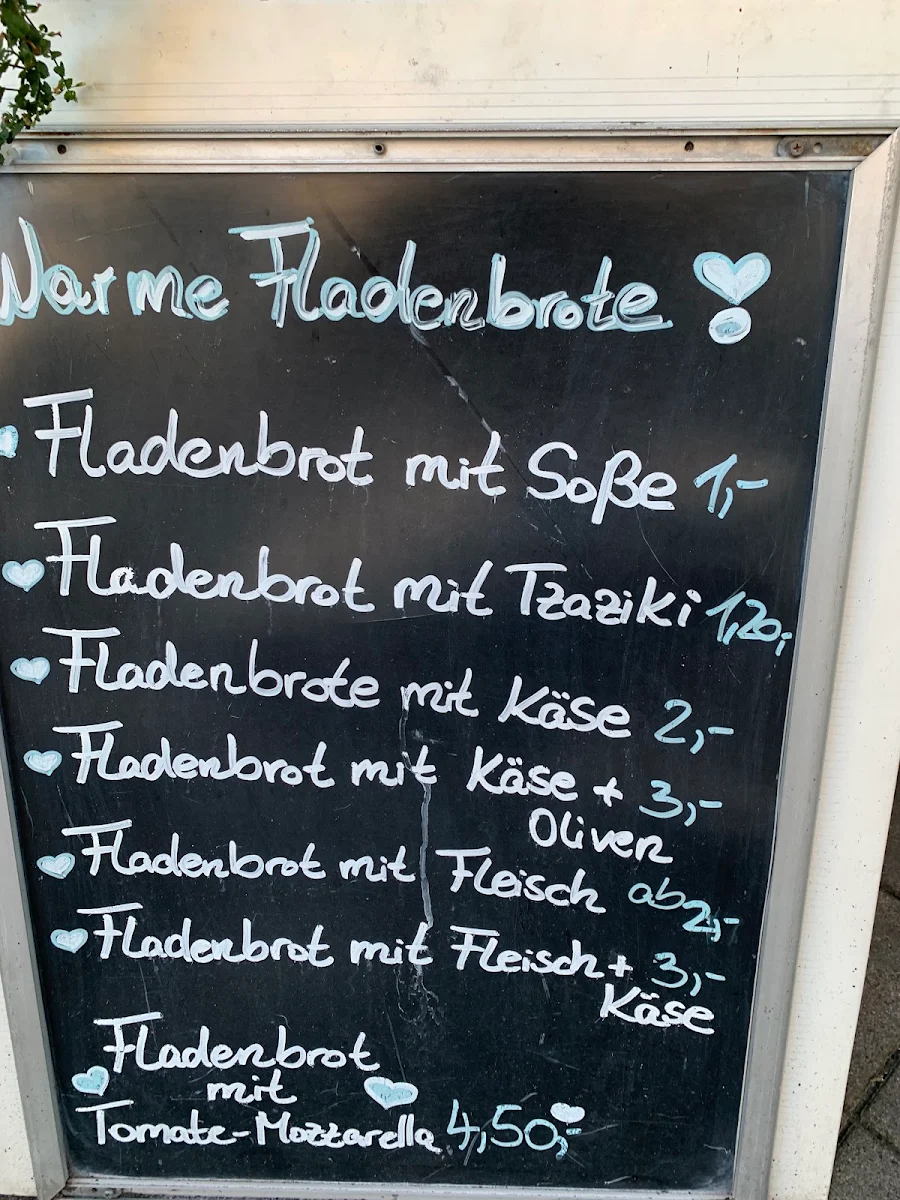 Warme Fladenbrote !
Fladenbrot mit Soße 1,-
Fladenbrot mit Tzaziki 1,20,-
Fladenbrote mit Käse 2,-
Fladenbrot mit Käse + 3,-
Oliven
Fladenbrot mit Fleisch ab 2,-
Fladenbrot mit Fleisch + 3,-
Käse
Fladenbrot
mit
Tomate-Mozzarella 4,50,-